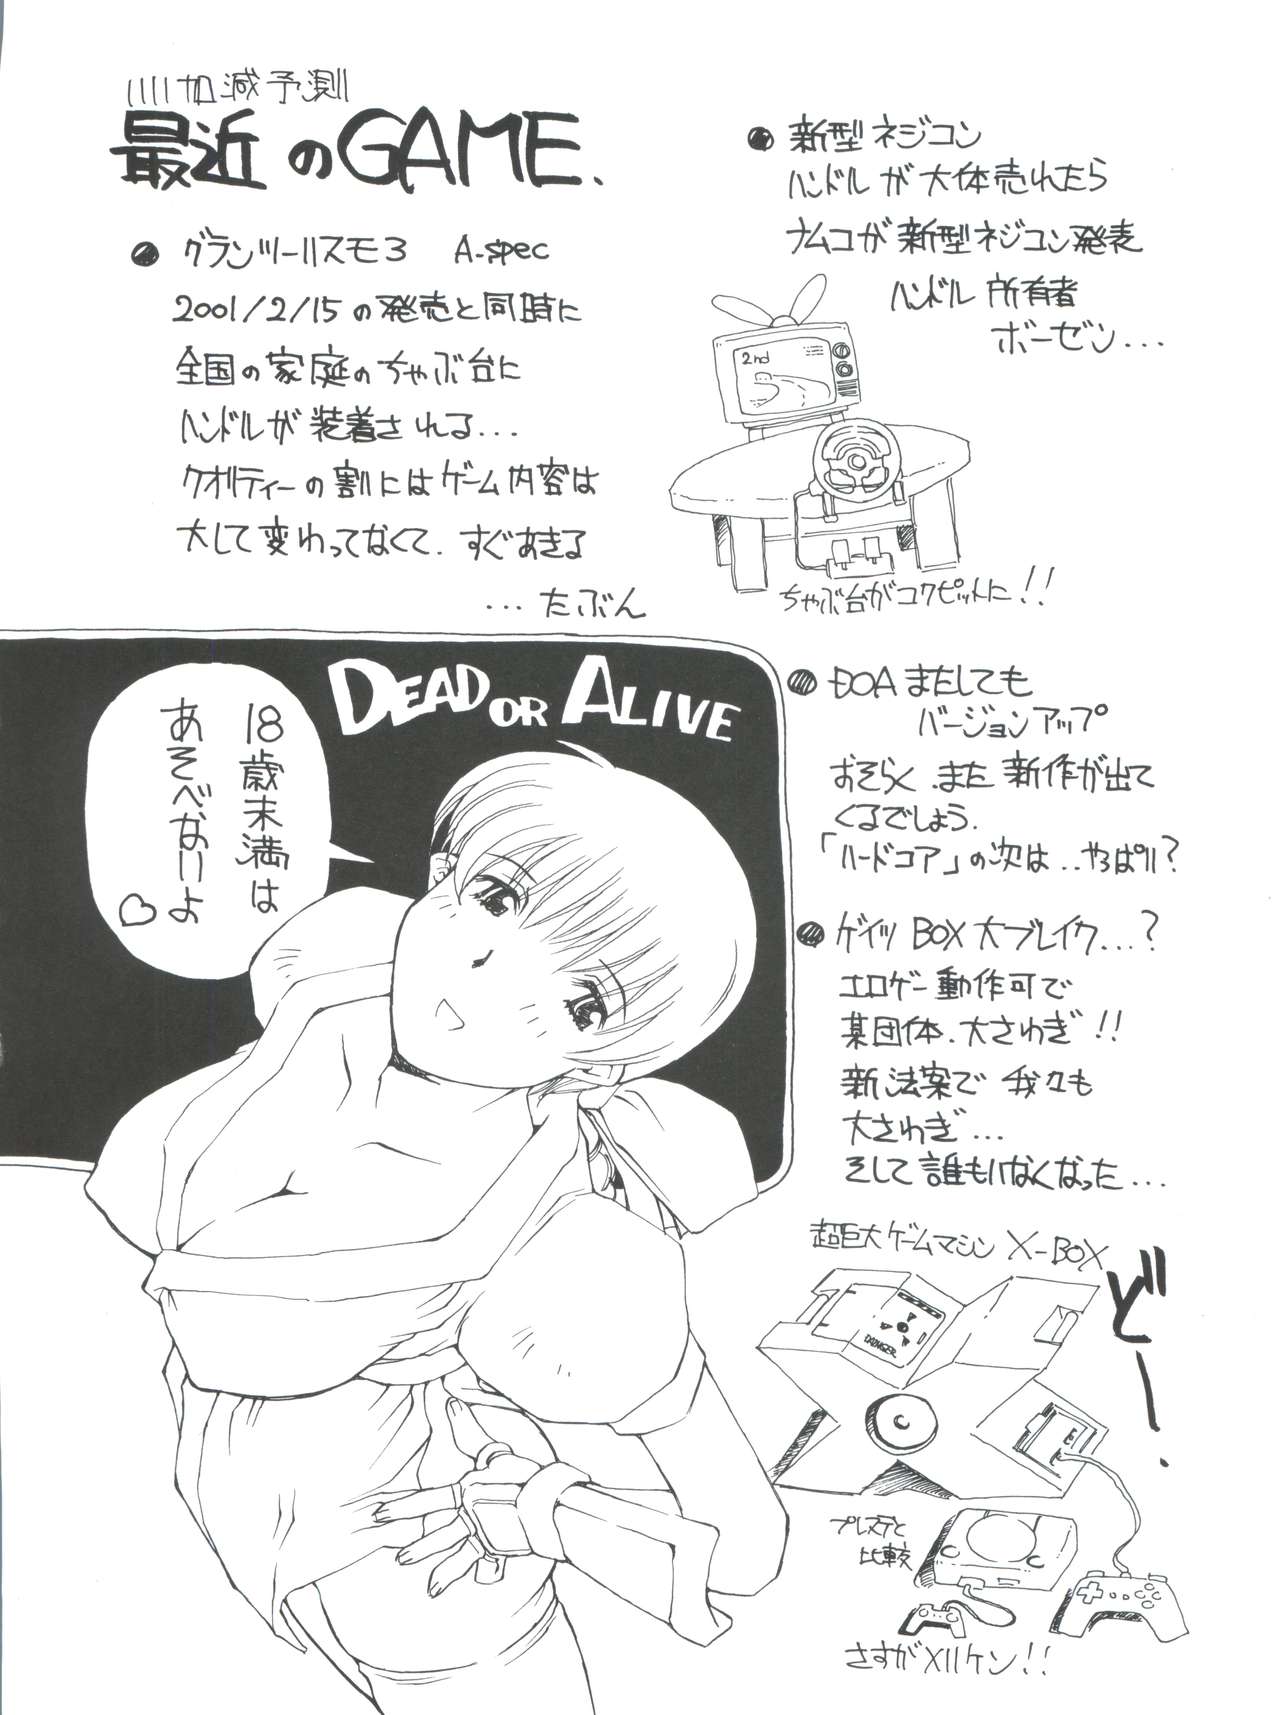 いいい加減予測
最近のGAME.
● グランツーリスモ3 A-spec
2001/2/15の発売と同時に
全国の家庭のちゃぶ台に
ハンドルが装着される...
クオリティーの割にはゲーム内容は
大して変わってなくて、すぐあきる
...たぶん
● 新型ネジコン
ハンドルが大体売れたら
ナムコが新型ネジコン発表
ハンドル所有者
ボーゼン...
2nd
ちゃぶ台がコクピットに!!
DEAD OR ALIVE
18歳未満は
あそべないよ
♡
● DOAまたしても
バージョンアップ
おそらく、また新作が出て
くるでしょう.
「ハードコア」の次は..やっぱり?
● ゲイツBOX大ブレイク...?
エロゲー動作可で
某団体、大さわぎ!!
新法案で我々も
大さわぎ...
そして誰もいなくなった...
超巨大ゲームマシン X-BOX
ど
ー.
DAINGER
E
プレステと
比較
さすがメリケン!!